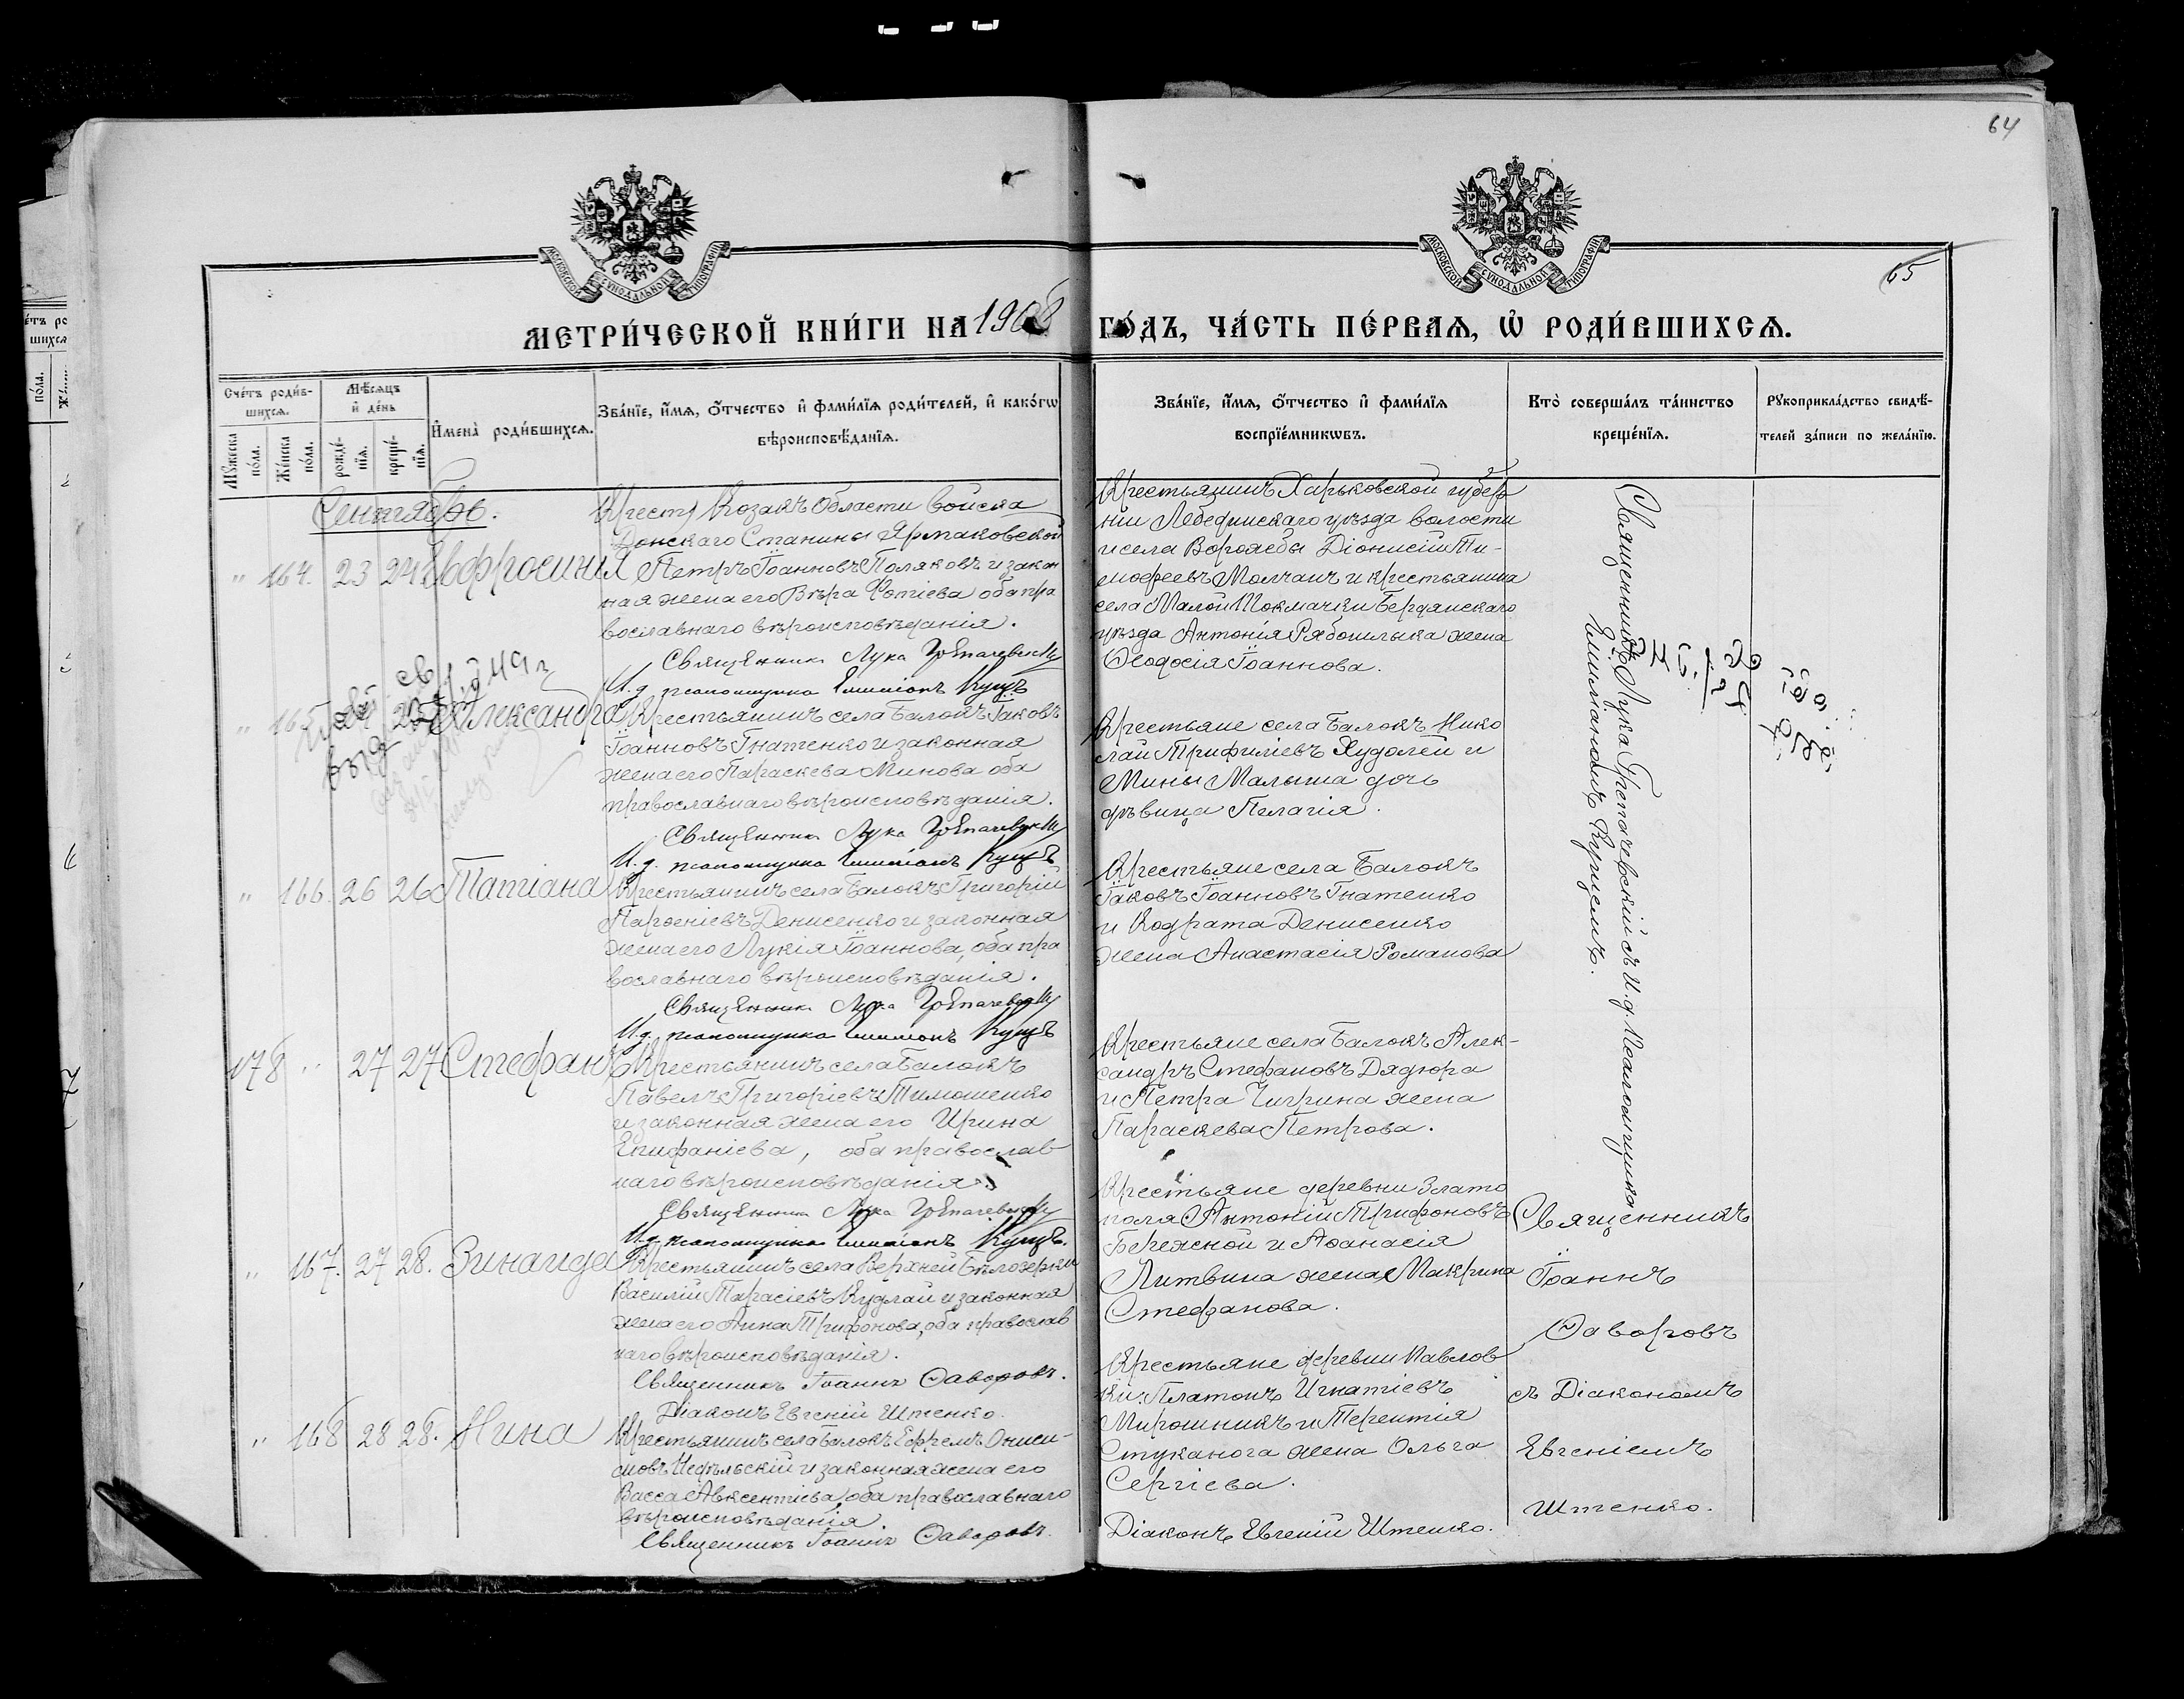 64
65
МЕТРИ́ЧЕСКОЙ КНИ́ГИ НА 1908 ГО́ДЪ, ЧА́СТЬ ПЕ́РВАЯ, Ѡ РОДИ́ВШИХСЯ.
Сче́тъ роди́в-
шихся.
Мꙋ́жеска
по́ла.
Же́нска
по́ла.
Мѣ́сяцъ
и҆ де́нь
рожде́-
нїя.
креще́-
нїя.
И҆мена̀ роди́вшихся.
Зва́нїе, и҆́мя, ѻ҆́тчество и҆ фами́лїя роди́телей, и҆ како́гѡ
вѣроисповѣ́данїя.
Зва́нїе, и҆́мя, ѻ҆́тчество и҆ фами́лїя
воспрїе́мникѡвъ.
Кто̀ соверша́лъ та́инство
креще́нїя.
Рꙋкоприкла́дство свидѣ́-
телей за́писи по жела́нїю.
Сентябрь.
" 164. 23 24 Евфросинія
Козакъ Области Войска
Донскаго Станицы Ярмаковской
Петръ Іоанновъ Поляковъ и закон
ная жена его Вѣра Фотіева оба пра
вославнаго вѣроисповѣданія.
Священникъ Лука
И. д. псаломщика Емиліанъ Куцъ
Крестьянинъ Харьковской губер
ніи Лебединскаго уѣзда волости
и села Ворожбы Діонисій Ти-
моѳеевъ Молчанъ и крестьянина
села Малой Токмачки Бердянскаго
уѣзда Антонія Рябошлыка жена
Ѳеодосія Іоаннова.
" 165 25 Александра
Крестьянинъ села Балокъ Іаковъ
Іоанновъ Гнатенко и законная
жена его Параскева Минова оба
православнаго вѣроисповѣданія.
Священникъ Лука
И. д. псаломщика Емиліанъ Куцъ
Крестьяне села Балокъ Нико
лай Трифиліевъ Худолей и
Мины Малыша дочь
дѣвица Пелагія.
" 166 26 26 Татіана
Крестьянинъ села Балокъ Григорій
Парѳеніевъ Денисенко и законная
жена его Лукія Іоаннова, оба пра
вославнаго вѣроисповѣданія.
Священникъ Лука
И. д. псаломщика Емиліанъ Куцъ
Крестьяне села Балокъ
Іаковъ Іоанновъ Гнатенко
и Кодрата Денисенко
жена Анастасія Романова
178 " 27 27 Стефанъ
Крестьянинъ села Балокъ
Павелъ Григоріевъ Тимошенко
и законная жена его Ирина
Епифаніева, оба православ
наго вѣроисповѣданія.
Священникъ Лука
И. д. псаломщика Емиліанъ Куцъ.
Крестьяне села Балокъ Алек-
сандръ Стефановъ Дядюра
и Петра Чигрина жена
Параскева Петрова.
Священникъ Лука съ И. д. псаломщика
Емиліаномъ Куцемъ.
" 167. 27 28. Зинаида
Крестьянинъ села Верхней Бѣлозерки
Василій Тарасіевъ Кудлай и законная
жена его Анна Трифонова, оба православ
наго вѣроисповѣданія.
Священникъ Іоаннъ Ѳаворовъ.
Діаконъ Евгеній Штенко.
Крестьяне деревни Злато
поля Антоній Трифоновъ
Бережной и Аѳанасія
Литвина жена Макрина
Стефанова.
Священникъ
Іоаннъ
Ѳаворовъ
съ Діакономъ
Евгеніемъ
Штенко.
" 168 28 28. Нина
Крестьянинъ села Балокъ Ефремъ Ониси-
мовъ и законная жена его
Васса Авксентіева, оба православнаго
вѣроисповѣданія.
Священникъ Іоаннъ Ѳаворовъ.
Крестьяне деревни Павлов
ки: Платонъ Игнатіевъ
Мирошникъ и Терентія
Стуканога жена Ольга
Сергіева.
Діаконъ Евгеній Штенко.